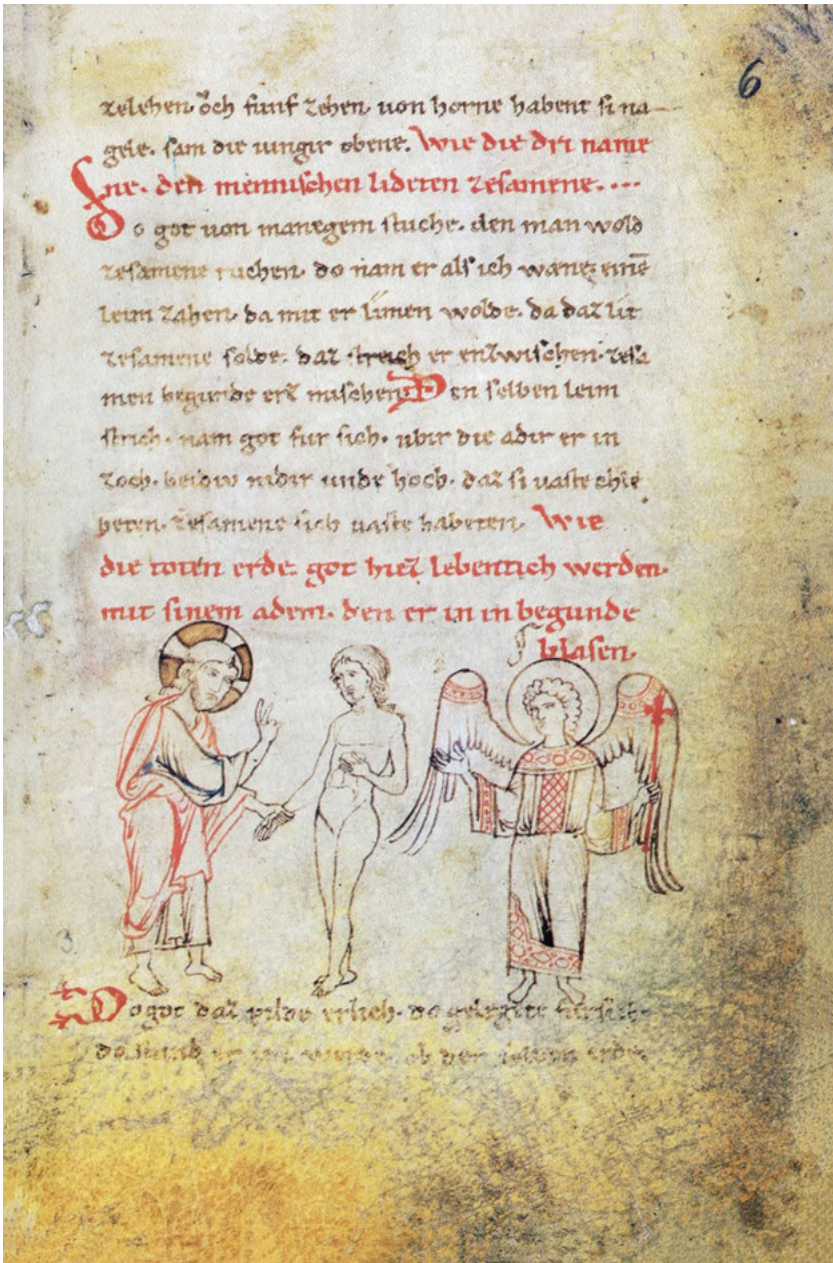 6
zelehen. öch funf zehen. von horne habent si na
gele. sam die vingir obene. Wie die dri name
ne. den mennischen lideten zesamene....
Do got von manegem stuche. den man wold
zesamene ruchen. do nam er als ich wæne. einē
leim zahen. da mit er limen wolde. da daz lit
zesamene solde. daz streich er enzwischen. zesa
men begunde erz mischen. Den selben leim
strich. nam got fur sich. ubir die adir er in
zoch. beidiv nidir unde hoch. daz si vaste chle
beten. zesamene sich vaste habeten. Wie
die toten erde. got hiez lebentich werden.
mit sinem adem. den er in in begunde
blasen.
3.
Do got daz pilde erlich. do gelegite fur sich.
do stund er ob der selben erde.